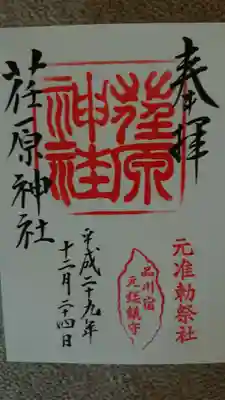 奉拝
元准勅祭社
荏原
神社
品川宿
元経鎮守
平成二十九年
十二月二十四日
荏原神社